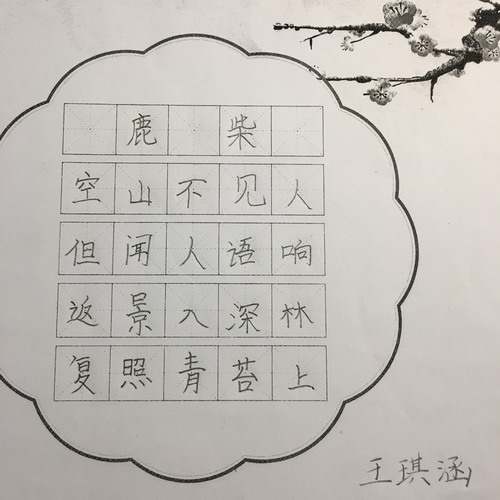 鹿柴
空山不见人
但闻人语响
返景入深林
复照青苔上
王琪涵